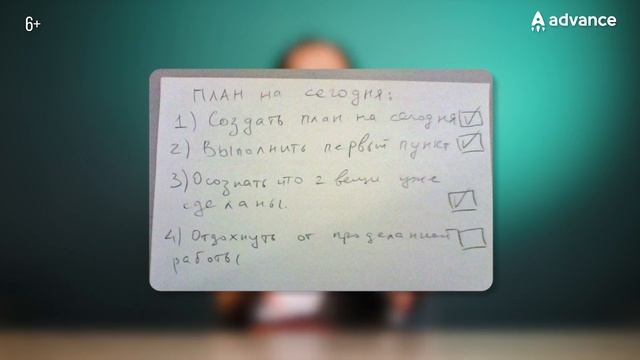 6+
advance
ПЛАН на сегодня:
1) Создать план на сегодня
2) Выполнить первый пункт
3) Осознать что 2 вещи уже
сделаны.
4) Отдохнуть от проделанной
работы